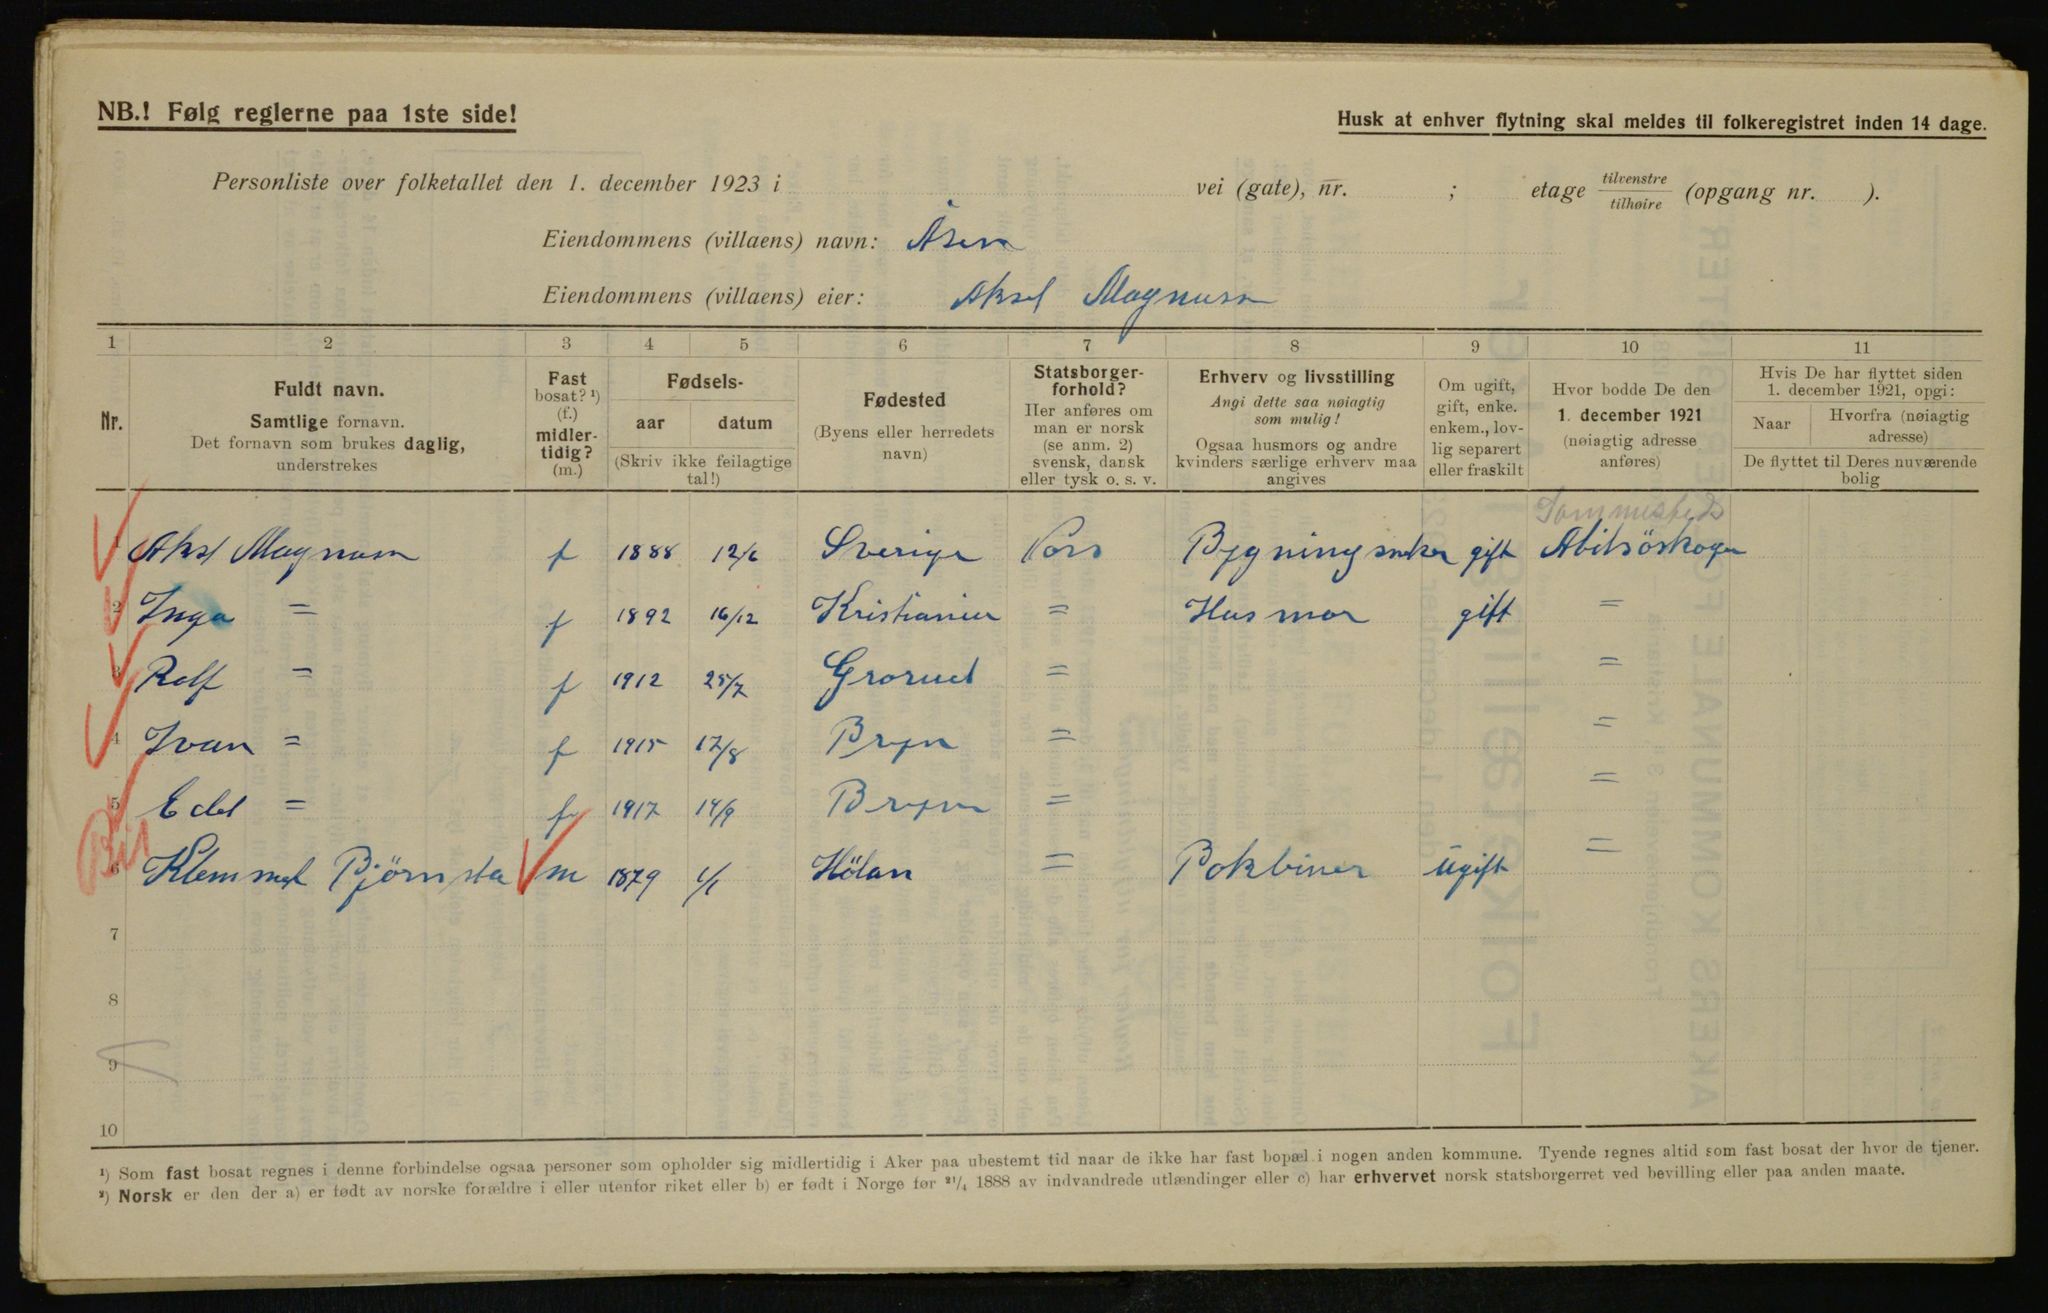 NB.! Følg reglerne paa 1ste side!
Husk at enhver flytning skal meldes til folkeregistret inden 14 dage.
Personliste over folketallet den 1. december 1923 i vei (gate), nr. ; etage tilvenstre/tilhøire (opgang nr. ).
Eiendommens (villaens) navn: Åsen
Eiendommens (villaens) eier: Aksel Magnusn
1 2 3 4 5 6 7 8 9 10 11
Nr.
Fuldt navn.
Samtlige fornavn.
Det fornavn som brukes daglig,
understrekes
Fast
bosat? ¹)
(f.)
midler-
tidig?
(m.)
Fødsels-
aar datum
(Skriv ikke feilagtige
tal!)
Fødested
(Byens eller herredets
navn)
Statsborger-
forhold?
Her anføres om
man er norsk
(se anm. 2)
svensk, dansk
eller tysk o. s. v.
Erhverv og livsstilling
Angi dette saa nøiagtig
som mulig!
Ogsaa husmors og andre
kvinders særlige erhverv maa
angives
Om ugift,
gift, enke.
enkem., lov-
lig separert
eller fraskilt
Hvor bodde De den
1. december 1921
(nøiagtig adresse
anføres)
Hvis De har flyttet siden
1. december 1921, opgi:
Naar Hvorfra (nøiagtig
adresse)
De flyttet til Deres nuværende
bolig
Samme sted
1 Aksl Magnusn f 1888 12/6 Sverige Nors Bygningsneker gift Abilsöskogen
2 Inga = f 1892 16/12 Kristiania = Husmor gift =
3 Rolf = f 1912 25/7 Grorud = =
4 Ivan = f 1915 17/8 Bryn = =
5 Edel = f 1917 14/9 Bryn = =
6 Klemmet Bjørnsta m 1879 1/1 Hölan = Bokbiner ugift =
7
8
9
10
¹) Som fast bosat regnes i denne forbindelse ogsaa personer som opholder sig midlertidig i Aker paa ubestemt tid naar de ikke har fast bopæl i nogen anden kommune. Tyende regnes altid som fast bosat der hvor de tjener.
²) Norsk er den der a) er født av norske forældre i eller utenfor riket eller b) er født i Norge før 21/4 1888 av indvandrede utlændinger eller c) har erhvervet norsk statsborgerret ved bevilling eller paa anden maate.